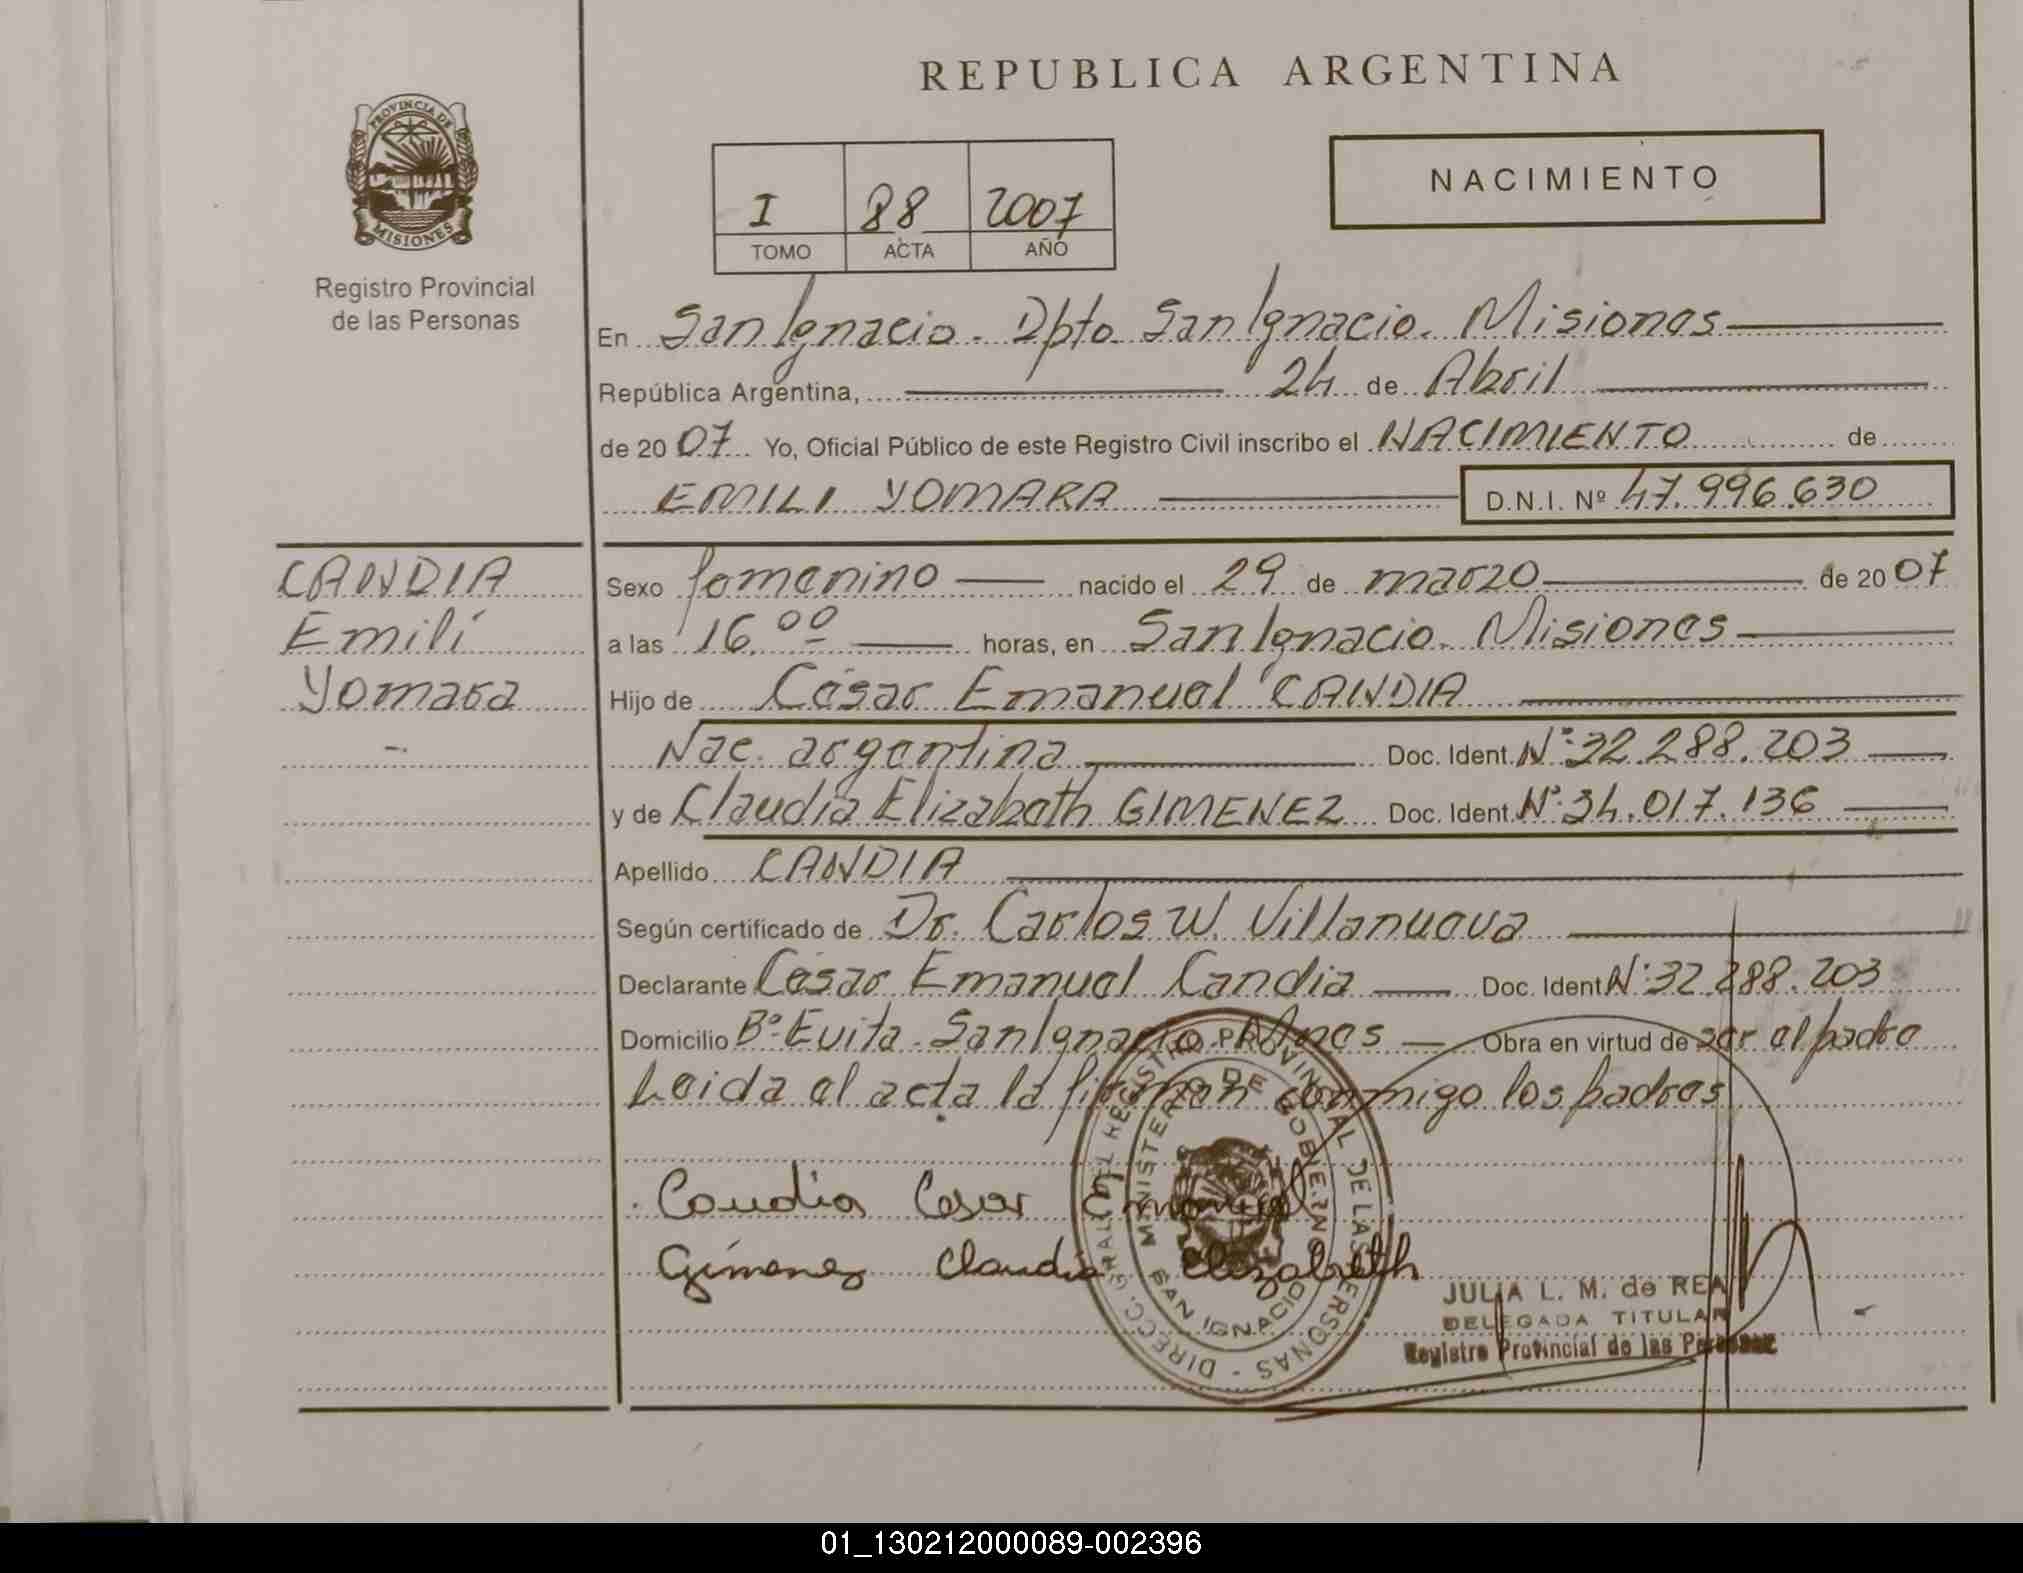 REPUBLICA ARGENTINA
PROVINCIA DE
MISIONES
Registro Provincial
de las Personas
I 88 2007
TOMO ACTA AÑO
NACIMIENTO
En San Ignacio. Dpto. San Ignacio. Misiones
República Argentina, 24 de Abril
de 2007 Yo, Oficial Público de este Registro Civil inscribo el NACIMIENTO de
EMILI YOMARA D.N.I. Nº 47.996.630
CANDIA
Emili
Yomara
Sexo femenino nacido el 29 de marzo de 2007
a las 16.00 horas, en San Ignacio. Misiones
Hijo de César Emanuel CANDIA
Nac. argentina Doc. Ident. Nº: 32.288.203
y de Claudia Elizabeth GIMENEZ Doc. Ident. Nº: 34.017.136
Apellido CANDIA
Según certificado de Dr. Carlos W. Villanueva
Declarante César Emanuel Candia Doc. Ident Nº: 32.288.203
Domicilio Bº Evita. San Ignacio Mnes Obra en virtud de ser el padre
Leida el acta la firman conmigo los padres
Candia Cesar Emanuel
Gimenez Claudia Elizabeth
DIRECC. GRAL. DEL REGISTRO PROVINCIAL DE LAS PERSONAS -
MINISTERIO DE GOBIERNO
SAN IGNACIO
JULIA L. M. de REA
DELEGADA TITULAR
Registro Provincial de las Personas
01_130212000089-002396